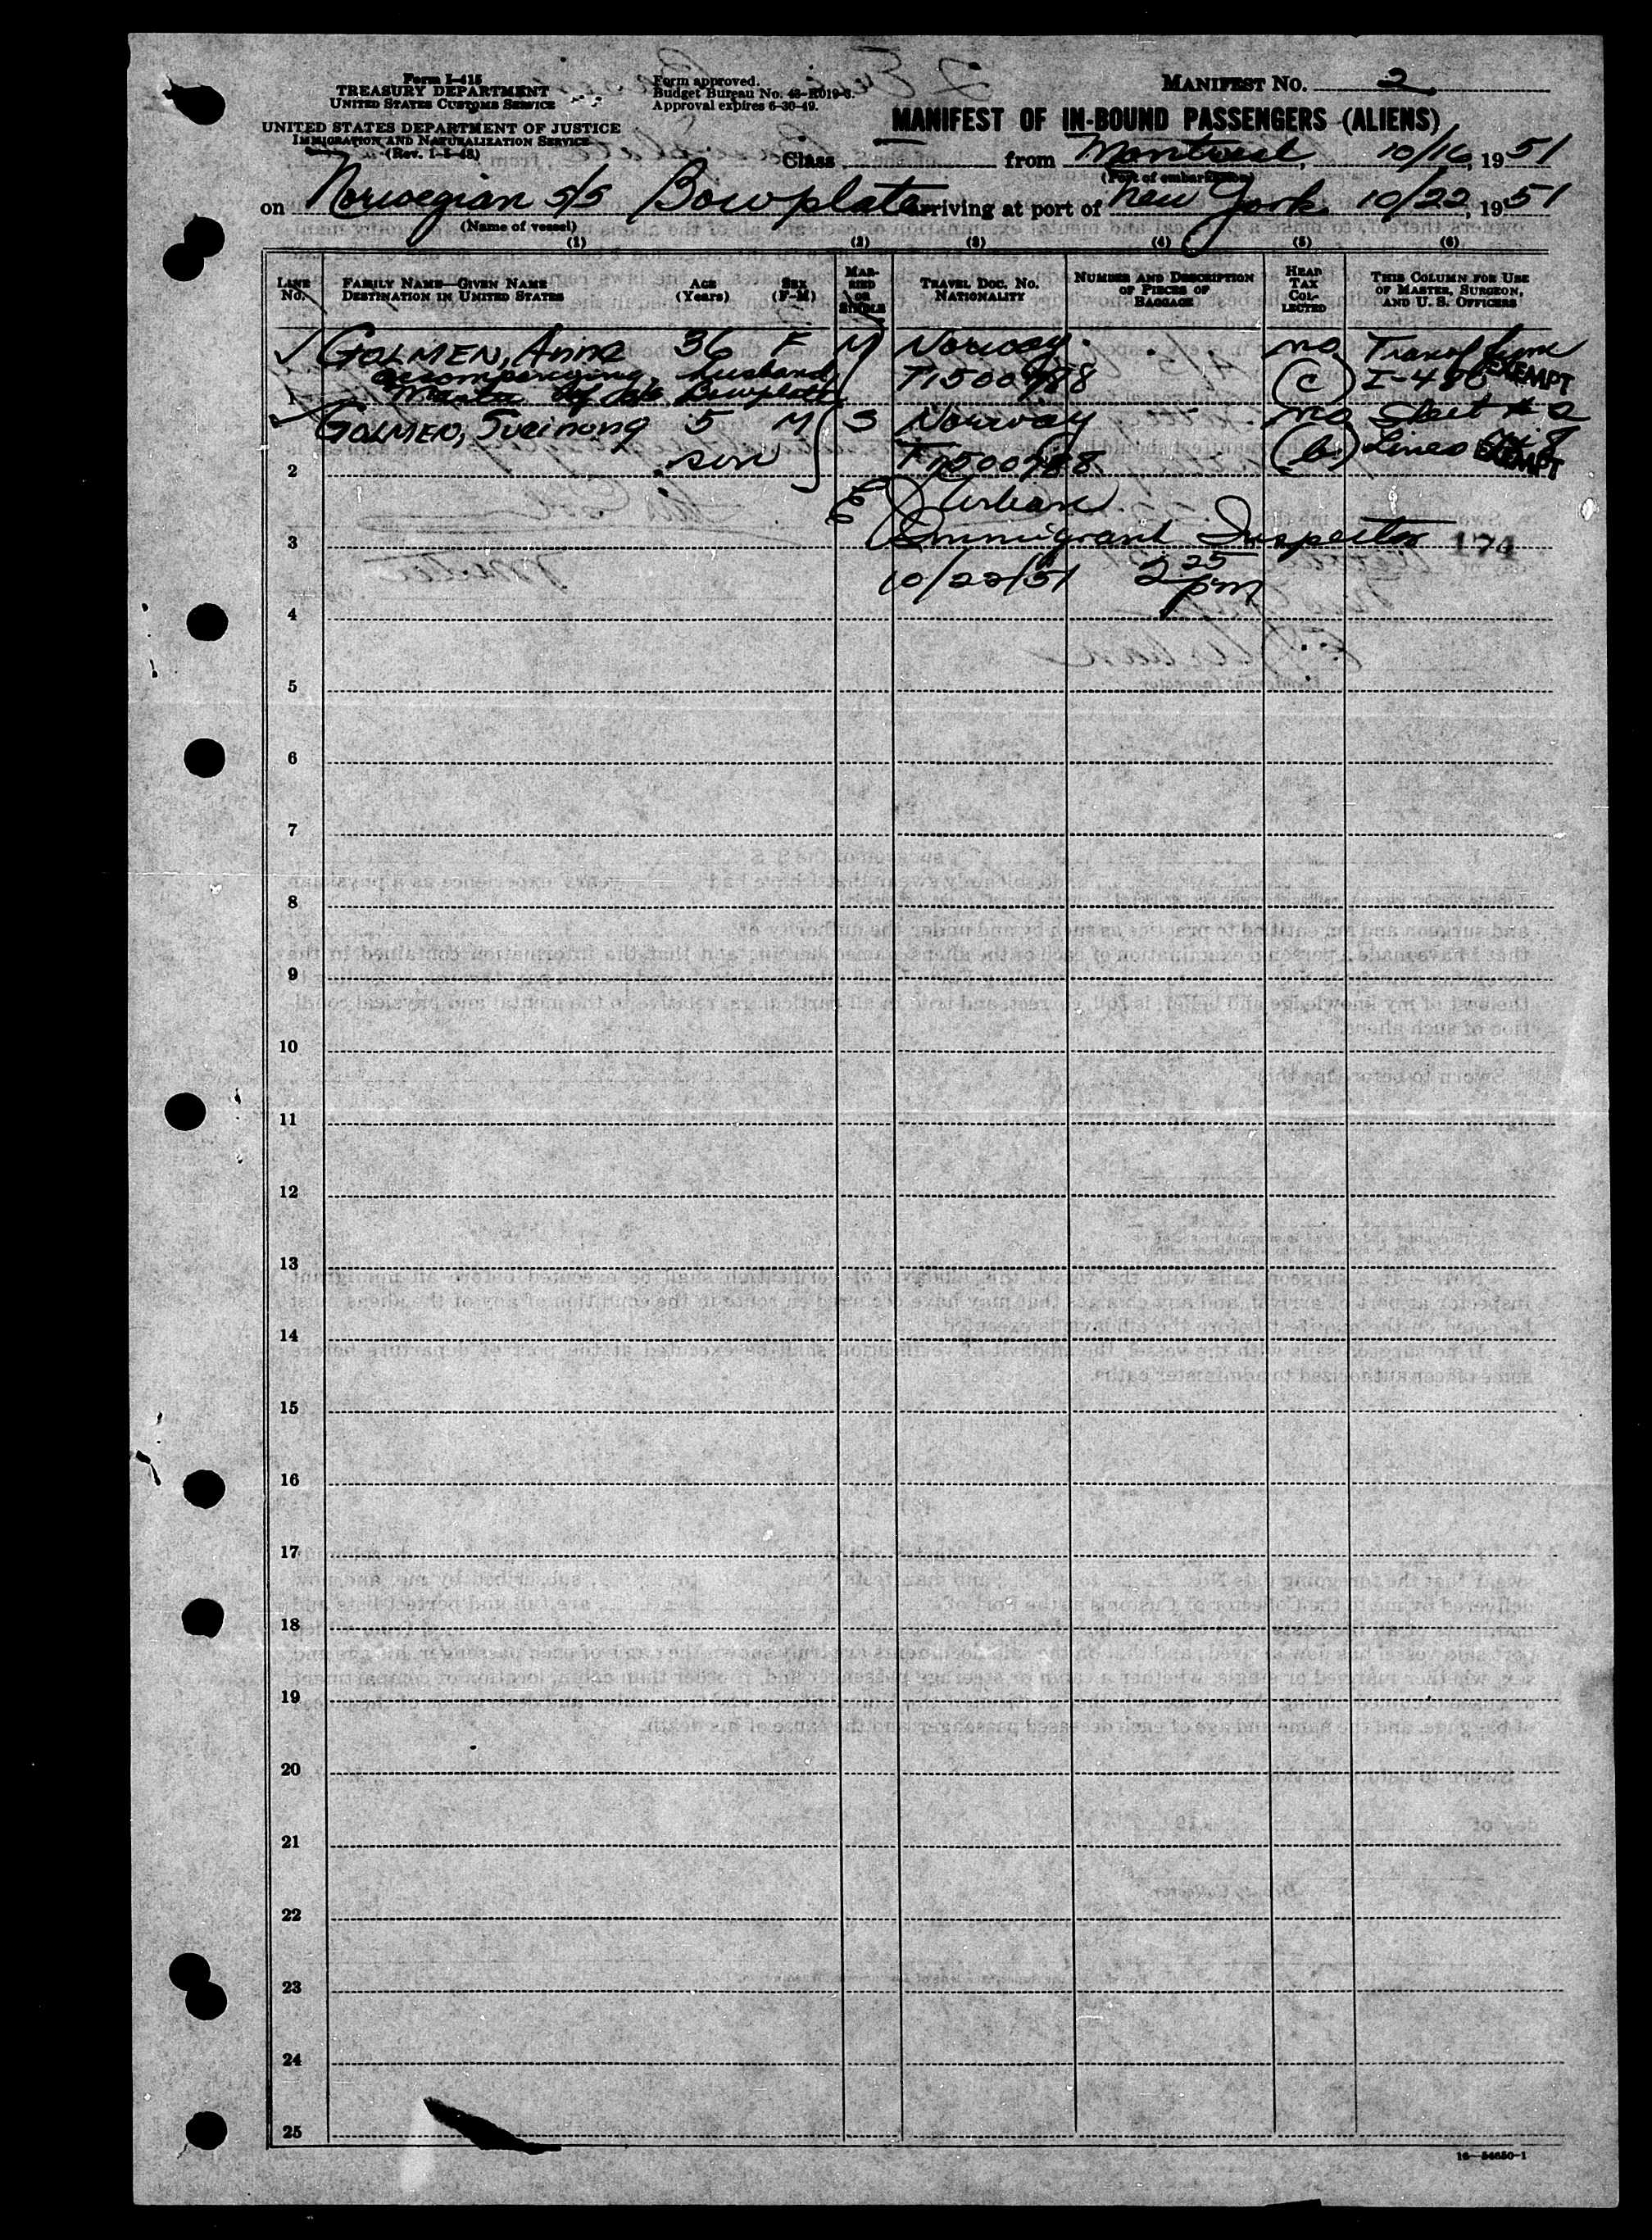 Form I-415
TREASURY DEPARTMENT
UNITED STATES CUSTOMS SERVICE
UNITED STATES DEPARTMENT OF JUSTICE
IMMIGRATION AND NATURALIZATION SERVICE
(Rev. 1-5-48)
Form approved.
Budget Bureau No. 43-R019-3.
Approval expires 6-30-49.
MANIFEST NO. 2
MANIFEST OF IN-BOUND PASSENGERS (ALIENS)
Class from Montreal, 10/16, 1951
(Port of embarkation)
on Norwegian s/s Bowplate arriving at port of New York 10/22, 1951
(Name of vessel)
(1) (2) (3) (4) (5) (6)
LINE NO.
FAMILY NAME—GIVEN NAME
DESTINATION IN UNITED STATES
AGE (Years)
SEX (F-M)
MARRIED OR SINGLE
TRAVEL DOC. NO.
NATIONALITY
NUMBER AND DESCRIPTION OF PIECES OF BAGGAGE
HEAD TAX COLLECTED
THIS COLUMN FOR USE OF MASTER, SURGEON, AND U. S. OFFICERS
GOLMEN, Anna 36 F M Norway no Transf from
accompanying husband T1500988 (c) I-480 EXEMPT
1 Master of s/s Bowplate
GOLMEN, 5 M S Norway no Sheet # 2
2 son T1500988 (b) Lines EXEMPT
E J Urban
3 Immigrant Inspector 174
10/22/51 2 25 pm
4
5
6
7
8
9
10
11
12
13
14
15
16
17
18
19
20
21
22
23
24
25
16—54650-1